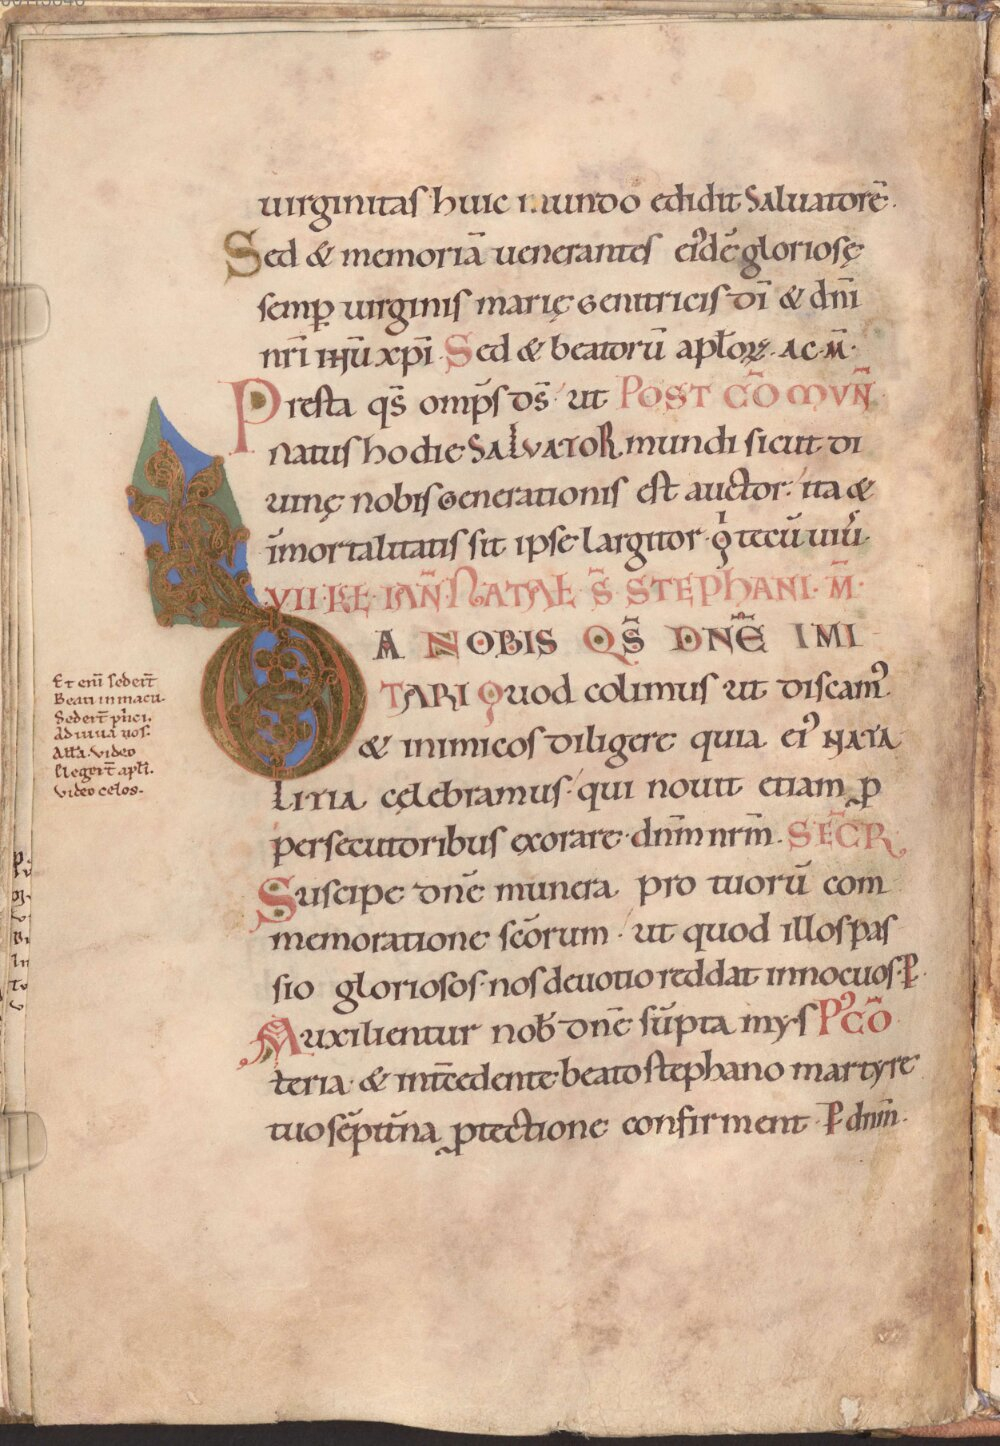 uirginitaſ huic mundo edidit Saluatorē.
Sed & memoriā uenerantes eiꝰdē glorioſę
ſemꝑ uirginiſ marię Genitricis dī & dnī
nrī IHŪ xpī. Sed & beatorū aplꝎ. AC M̄.
Preſta qs̄ omps̄ ds̄ ut POST CŌMVN̄
natuſ hodie SALVATOR mundi ſicut di
uinę nobis Generationis eſt auctor. ita &
īmortalitatiſ ſit ipſe largitor. q̇ tecū uiui.
VII KL IAN̄ NATAL S̄ STEPHANI M̄.
DA NOBIS QS̄ DN̄E IMI
TARI Quod colimus ut diſcamꝰ
& inimicos diligere quia eiꝰ NATA
LITIA cęlebramus qui nouit etiam ꝓ
perſecutoribus exorare dnm̄ nrm̄. SECR̄
Suſcipe dnē munera pro tuorū com
memoratione scōrum. ut quod illoſ paſ
ſio glorioſos noſ deuotio reddat innocuos. P̄.
Auxilientur nob̄ dnē sūpta myſ Pꝰ CŌ
teria & int̄cedente beato ſtephano martyre
tuo sēpit̄na ꝓtectione confirment. P̄ dnm̄.
Et eni ſeder̄t
Beati inmacu.
Sedert̄ p̄nci.
Adiuua noſ.
Al̄l̄a. Video
Elegert̄ apl̄i.
Video celos.